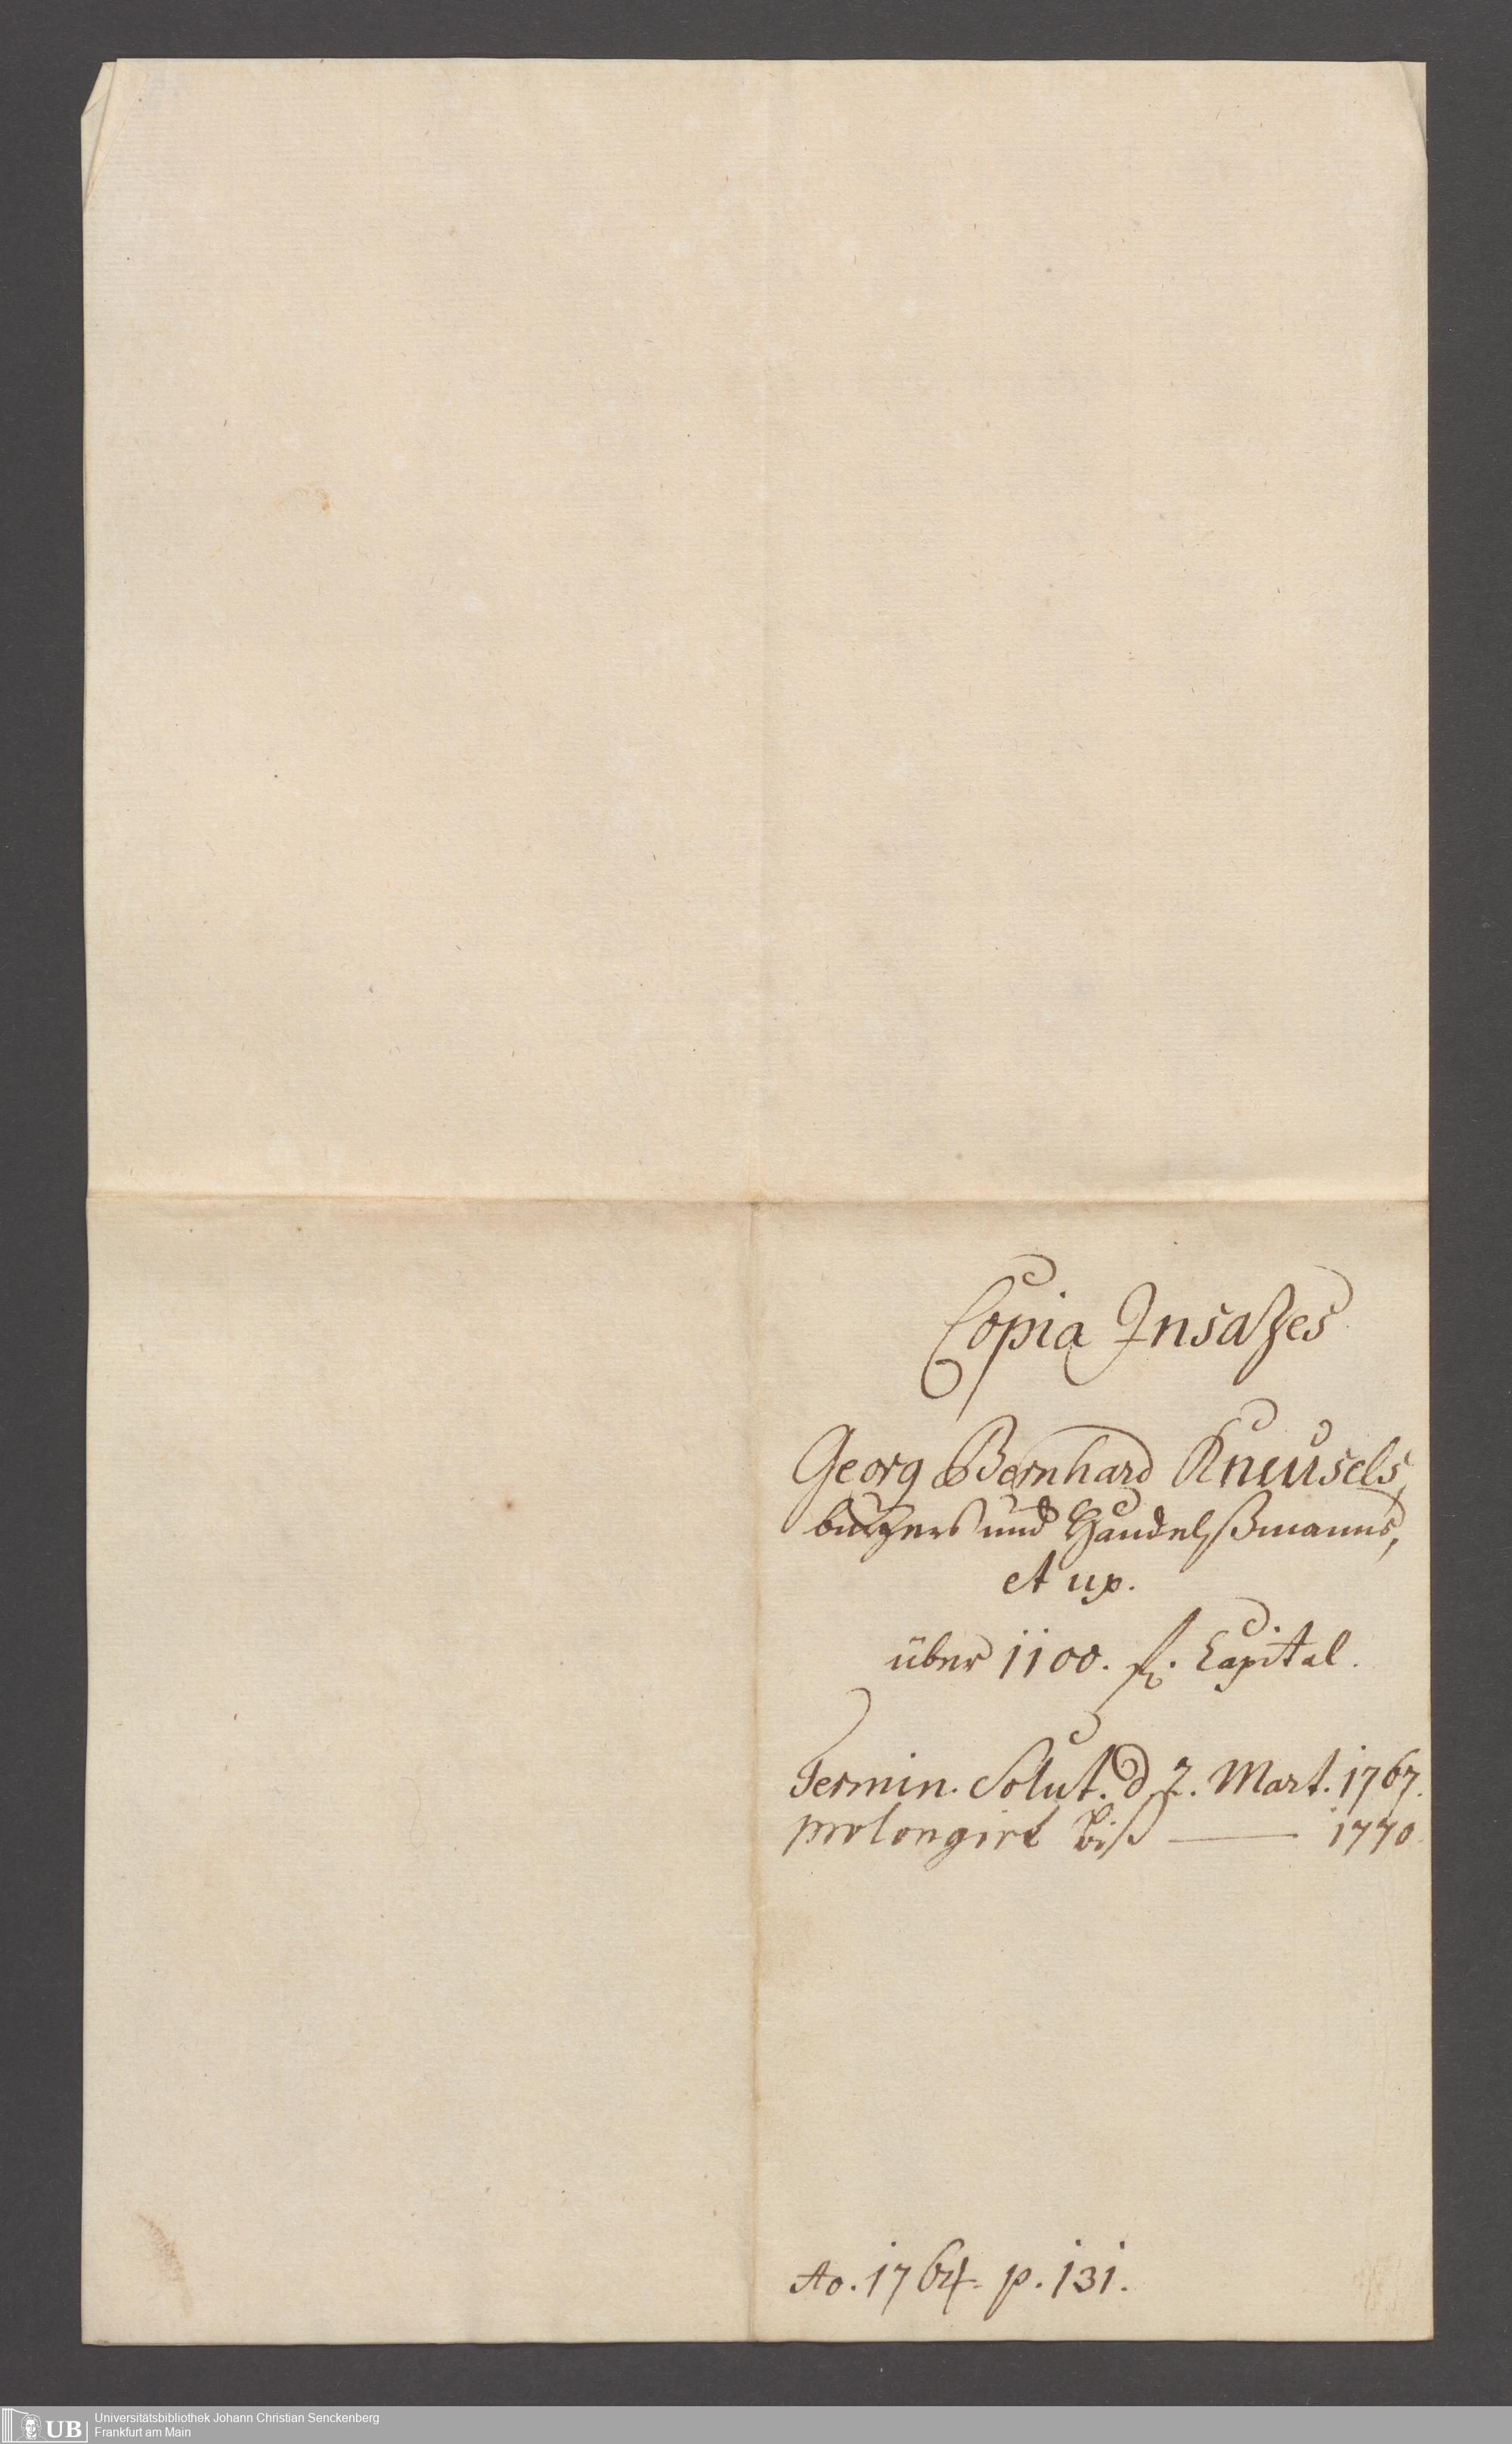 Copia Insatzes
Georg Bernhard Kneusels,
burgers und Handelßmanns,
et ux.
über 1100. fl. Capital.
Termin. Solut. d. 2. Mart. 1767.
prolongirt biß —— 1770.
Ao. 1764. p. 131.
UB
Universitätsbibliothek Johann Christian Senckenberg
Frankfurt am Main